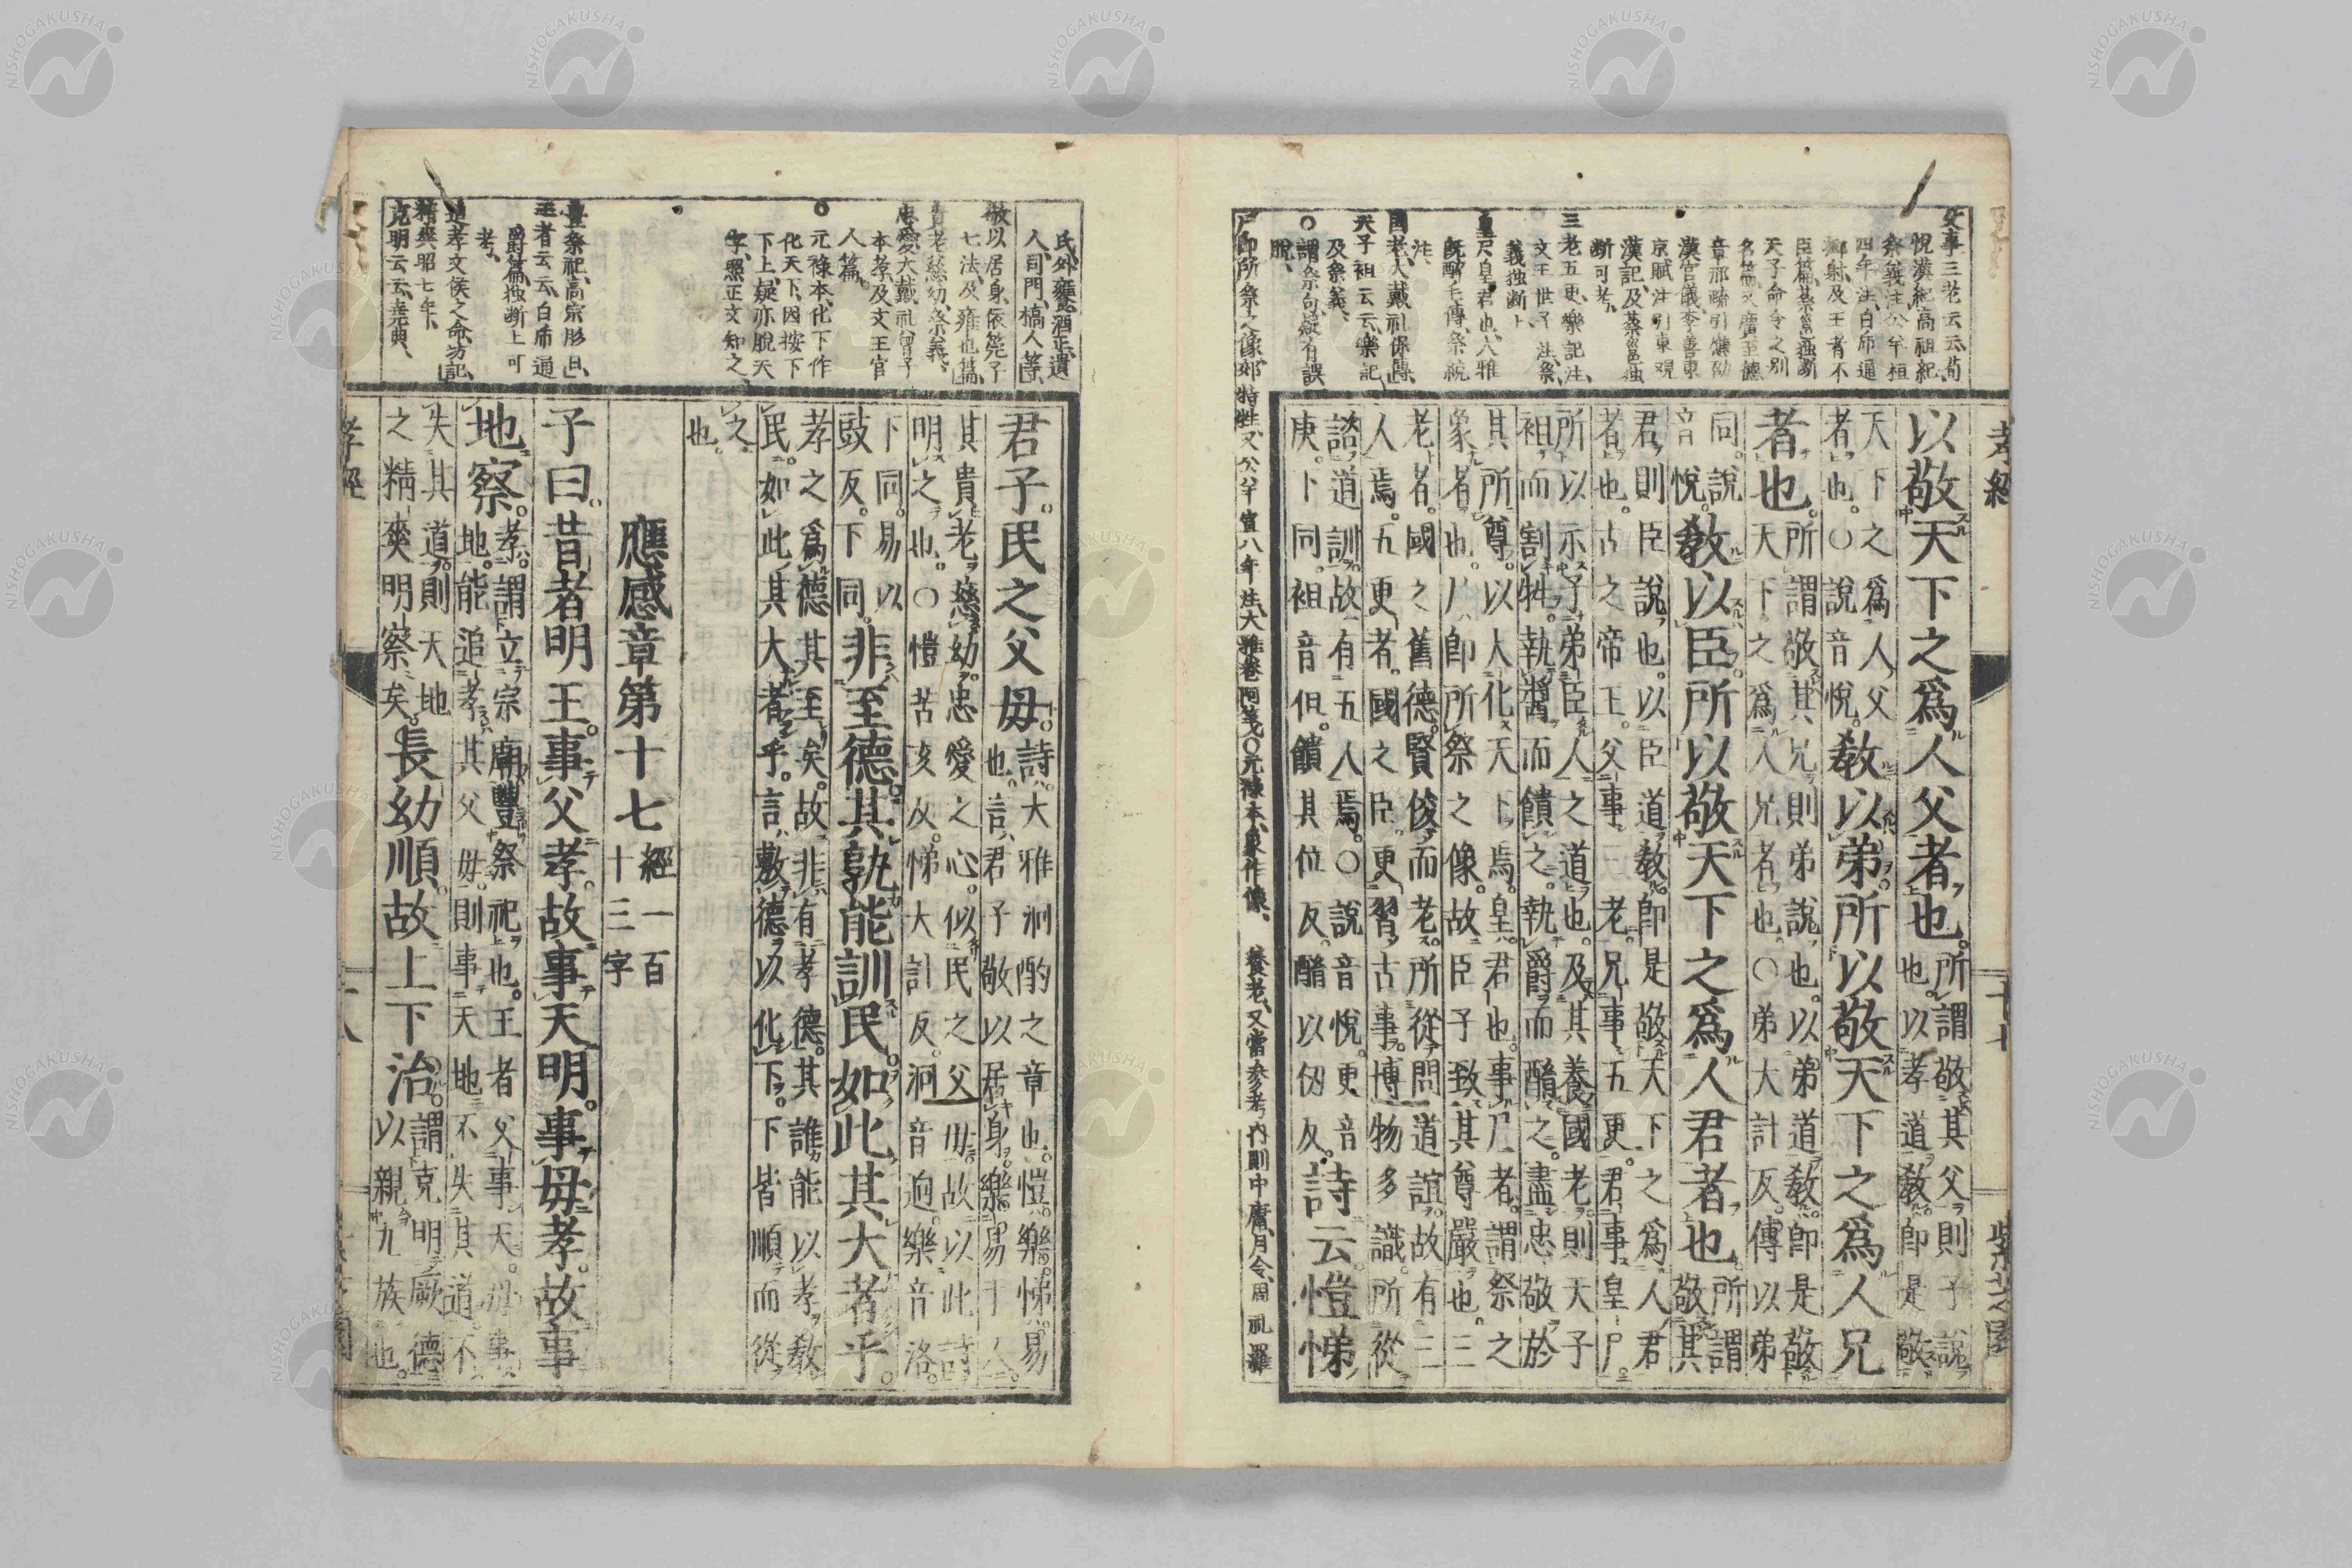 文事三老云云、荀
悅漢紀高祖紀、
祭義注、公羊桓
四年注、白虎通
鄉射、及王者不
臣篇、蔡邕独断
天子命令之別
名篇、又廣至德
章邢疏引應劭
漢官儀、李善東
京賦注、引東観
漢記、及蔡邕独
断可考、
三老五更、樂記注、
文王世子注、祭
義独断上、
皇尸皇君也、大雅
既醉毛傳、祭統
注、
國老、大戴礼保傳、
天子袒云云、樂記
及祭義、
○謂祭句、疑有誤
脫、
尸即所祭之像、郊特牲、又公羊宣八年注、大雅卷阿箋、○元祿本、象作像、　養老、又當參考、內則中庸、月令、周
孝經
以敬天下之爲人父者也。
所謂敬其父。則子說
也。以孝道敎。即是敬
天下之爲人父
者也。○說音悅。
敎以弟。所以敬天下之爲人兄
者也。
所謂敬其兄。則弟說也。以弟道敎。即是敬
天下之爲人兄者也。○弟大計反。傳以弟
同。說
音悅。
敎以臣。所以敬天下之爲人君者也。
所謂
敬其
君。則臣說也。以臣道敎。即是敬天下之爲人君
者也。古之帝王。父事三老。兄事五更。君事皇尸。
所以示子弟臣人之道也。及其養國老。則天子
袒而割牲。執醬而饋之。執爵而酳之。盡忠敬於
其所尊。以大化天下焉。皇。君也。事尸者。謂祭之
象者也。尸即所祭之像。故臣子致其尊嚴也。三
老者。國之舊德。賢俊而老。所從問道誼。故有三
人焉。五更者。國之臣。更習古事。博物多識。所從
諮道訓。故有五人焉。○說音悅。更音
庚。下同。袒音但。饋其位反。酳以刃反。
詩云愷悌
氏、外饔、酒正、遺
人、司門、槁人等、
敬以居身、依筦子
七法、及雍也篇、
貴老慈幼、祭義、
忠愛、大戴礼曾子
本孝、及文王官
人篇、
○元祿本、化下作
化天下、因按下
下上、疑亦脫天
字、照正文知之、
豐祭祀、高宗肜日、
王者云云、白虎通
爵篇、独断上可
考、
追孝、文侯之命、坊記、
精爽、昭七年、
克明云云、堯典、
君子。民之父母。
詩。大雅泂酌之章也。愷。樂。悌。易
也。言君子敬以居身。樂易于人。
其貴老慈幼。忠愛之心。似民之父母。故以此詩
明之也。○愷苦亥反。悌大計反。泂音迥。樂音洛。
下同。易以
豉反。下同。
非至德。其孰能訓民。如此其大者乎。
孝之爲德其至矣。故非有孝德。其誰能以孝敎
民。如此其大者乎。言敷德以化下。下皆順而從
之
也。
應感章第十七
經一百
十三字
子曰。昔者明王。事父孝。故事天明。事母孝。故事
地察。
孝。謂立宗廟。豐祭祀也。王者父事天。母事
地。能追孝其父母。則事天地不失其道。不
失其道。則天地
之精爽明察矣。
長幼順。故上下治。
謂克明厥德。
以親九族也。
孝經